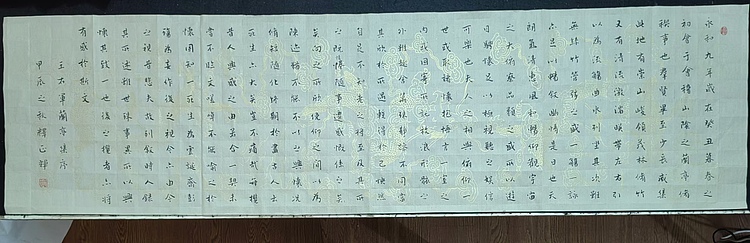 永和九年歲在癸丑暮春之
初會于會稽山陰之蘭亭脩
禊事也群賢畢至少長咸集
此地有崇山峻領茂林脩竹
又有清流激湍暎帶左右引
以為流觴曲水列坐其次雖
無絲竹管弦之盛一觴一詠
亦足以暢敘幽情是日也天
朗氣清惠風和暢仰觀宇宙
之大俯察品類之盛所以遊
目騁懷足以極視聽之娛信
可樂也夫人之相與俯仰一
世或取諸懷抱悟言一室之
內或因寄所託放浪形骸之
外雖趣舍萬殊靜躁不同當
其欣於所遇暫得於己快然
自足不知老之將至及其所
之既惓情隨事遷感慨係之矣
向之所欣俛仰之間以為
陳迹猶不能不以之興懷況
脩短隨化終期於盡古人云
死生亦大矣豈不痛哉每攬
昔人興感之由若合一契未
嘗不臨文嗟悼不能喻之於
懷固知一死生為虛誕齊彭
殤為妄作後之視今亦由今
之視昔悲夫故列敘時人錄
其所述雖世殊事異所以興
懷其致一也後之攬者亦將
有感於斯文
王右軍蘭亭集序
甲辰之秋